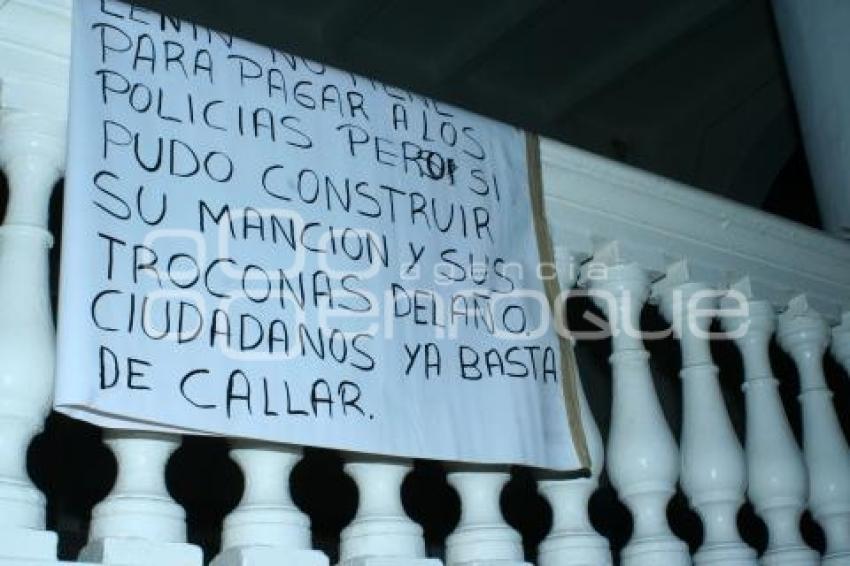 LENIN NO TIENE
PARA PAGAR A LOS
POLICIAS PERO SI
PUDO CONSTRUIR
SU MANCION Y SUS
TROCONAS DEL AÑO.
CIUDADANOS YA BASTA
DE CALLAR.
agencia
enfoque